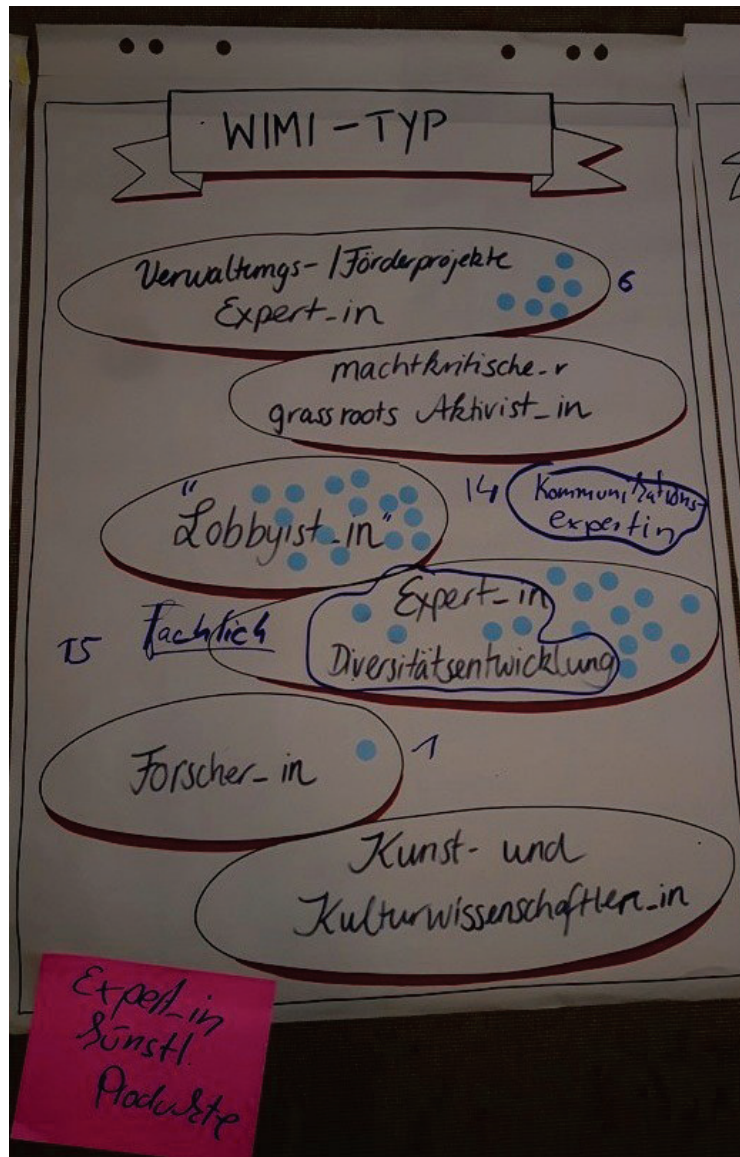 WIMI-TYP
Verwaltungs-/Förderprojekte
Expert_in
6
machtkritische_r
grassroots Aktivist_in
"Lobbyist_in"
14
Kommunikations-
expertin
15
Fachlich
Expert_in
Diversitätsentwicklung
Forscher_in
1
Kunst- und
Kulturwissenschaftler_in
Expert_in
künstl.
Produkte